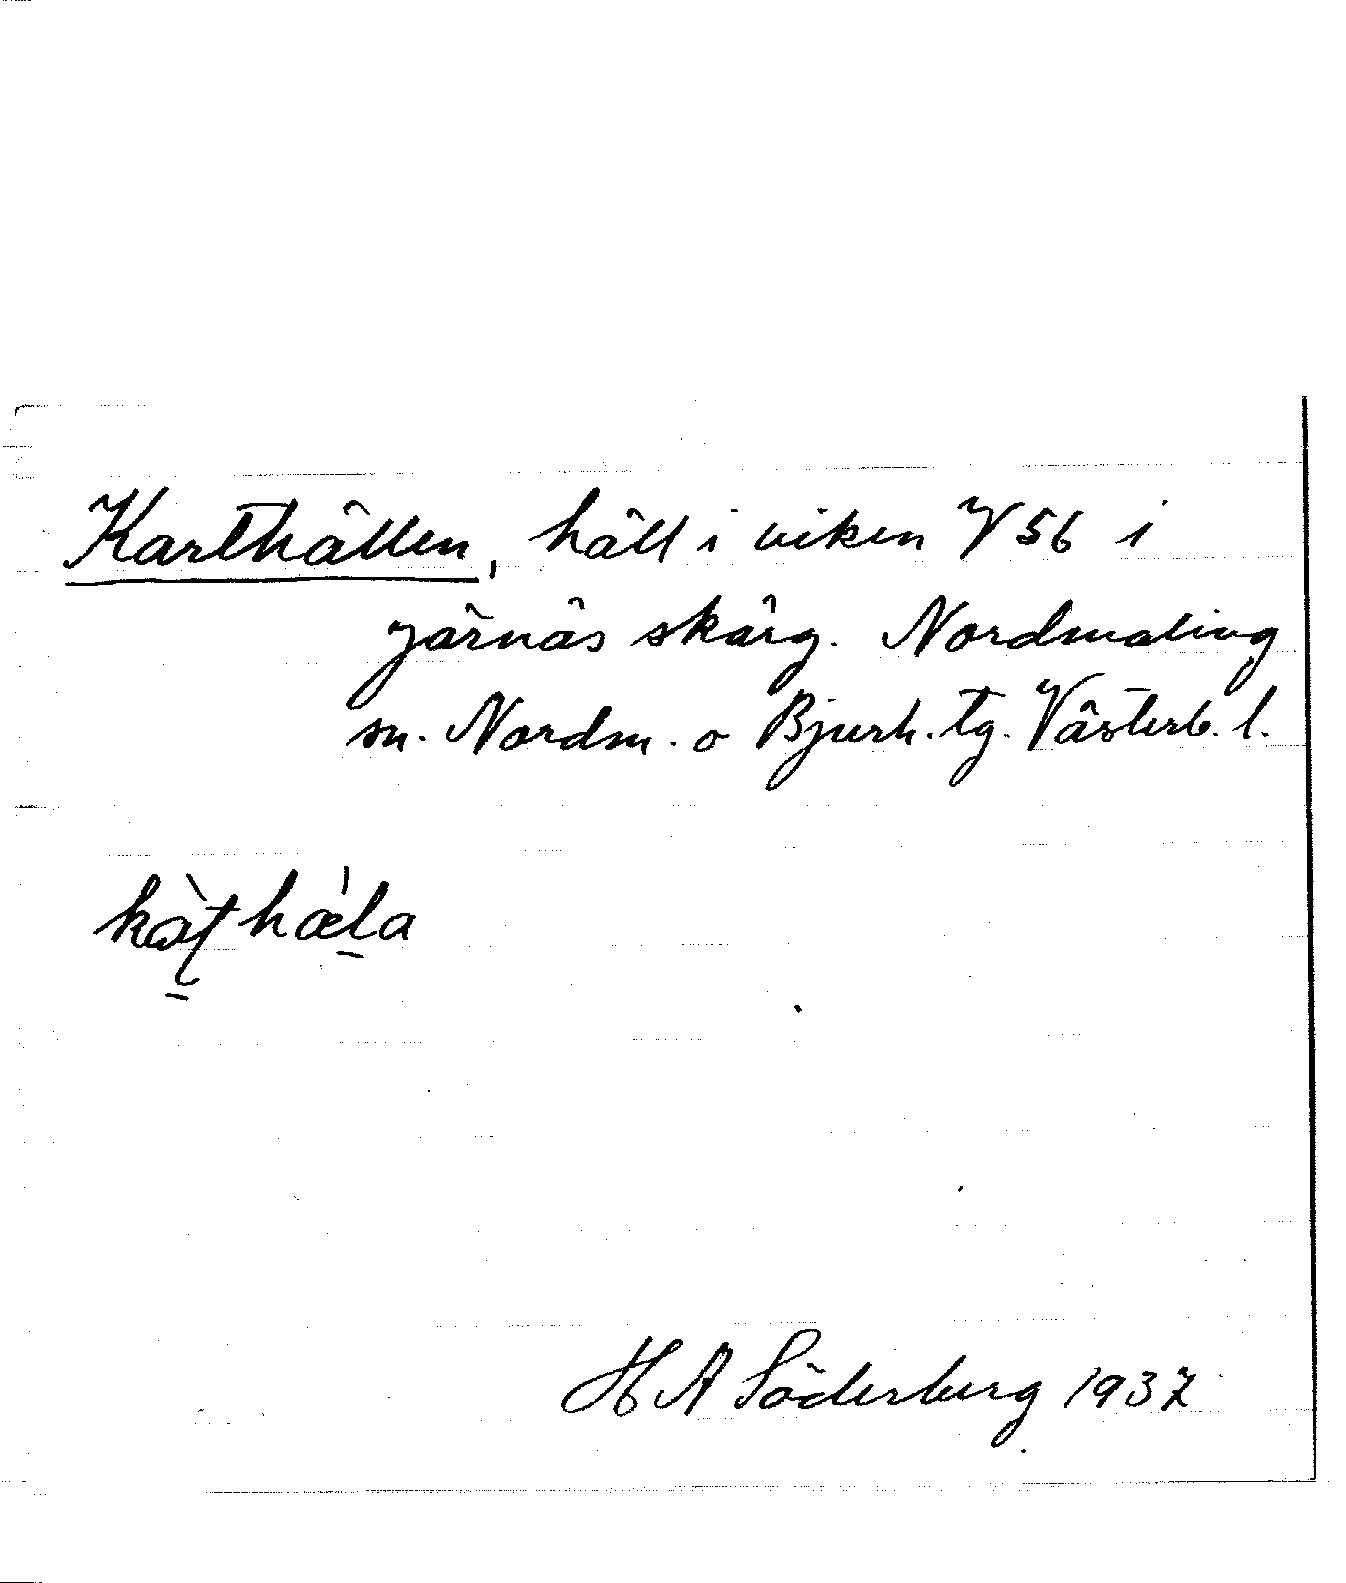 Karthällen, häll i viken V 56 i
Järnäs skärg. Nordmaling
sn. Nordm. o Bjurh. tg. Västerb. l.
kàʈhæ̀la
H A Söderberg 1937